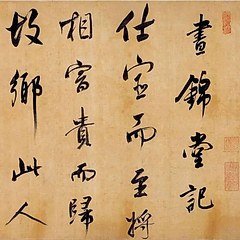 晝錦堂記
仕宦而至將
相富貴而歸
故鄉此人